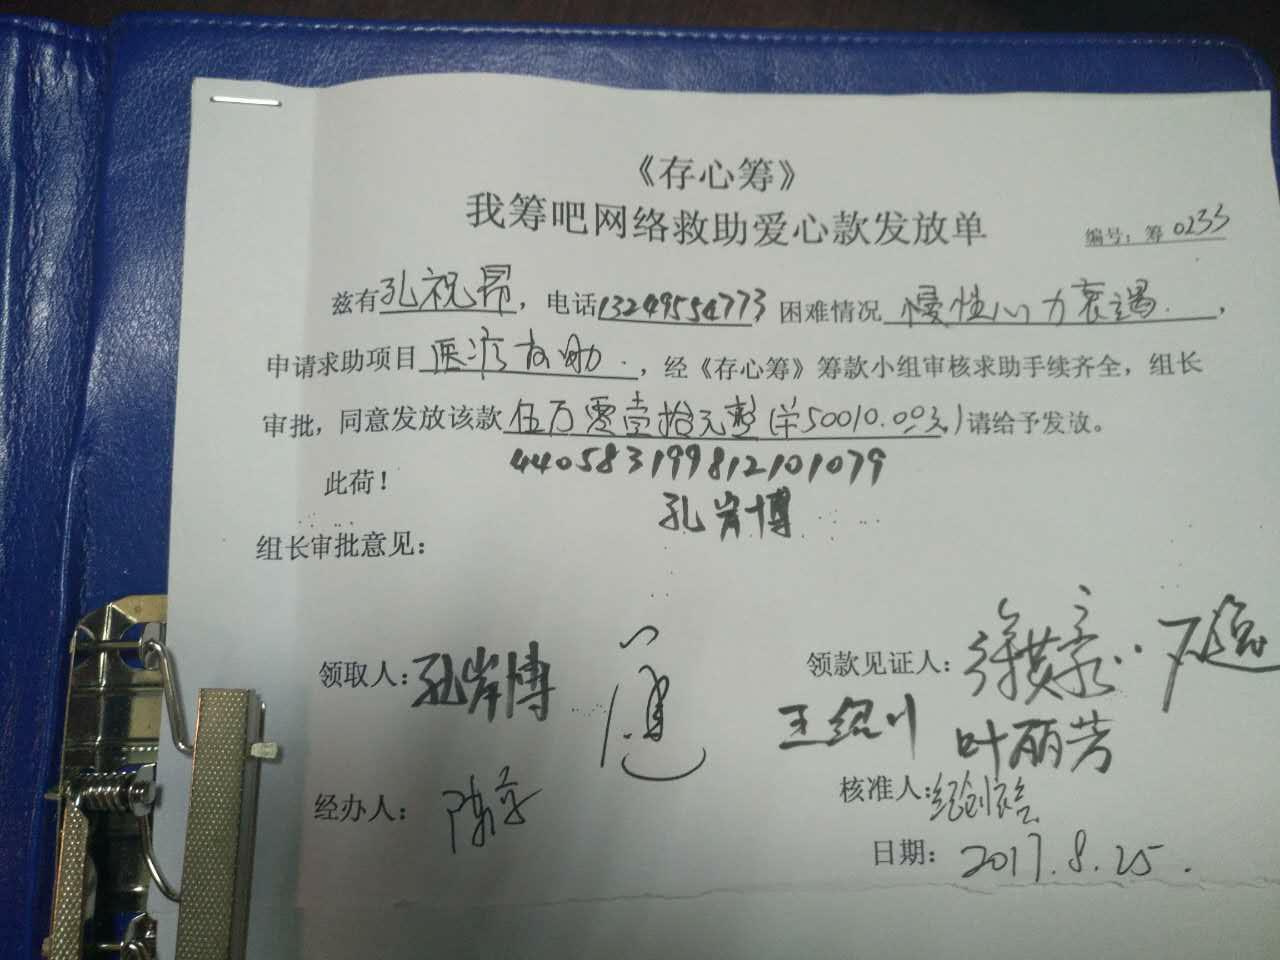 《存心筹》
我筹吧网络救助爱心款发放单
编号：筹 0233
兹有孔祝昂，电话13249554773 困难情况 慢性心力衰竭．，
申请求助项目 医疗救助．，经《存心筹》筹款小组审核求助手续齐全，组长
审批，同意发放该款 伍万零壹拾元整（￥50010.00元）请给予发放。
440583199812101079
此荷！
孔岸博
组长审批意见：
领取人：孔岸博
领款见证人：
王绍川 叶丽芳
经办人：
核准人：
日期：2017.8.25.